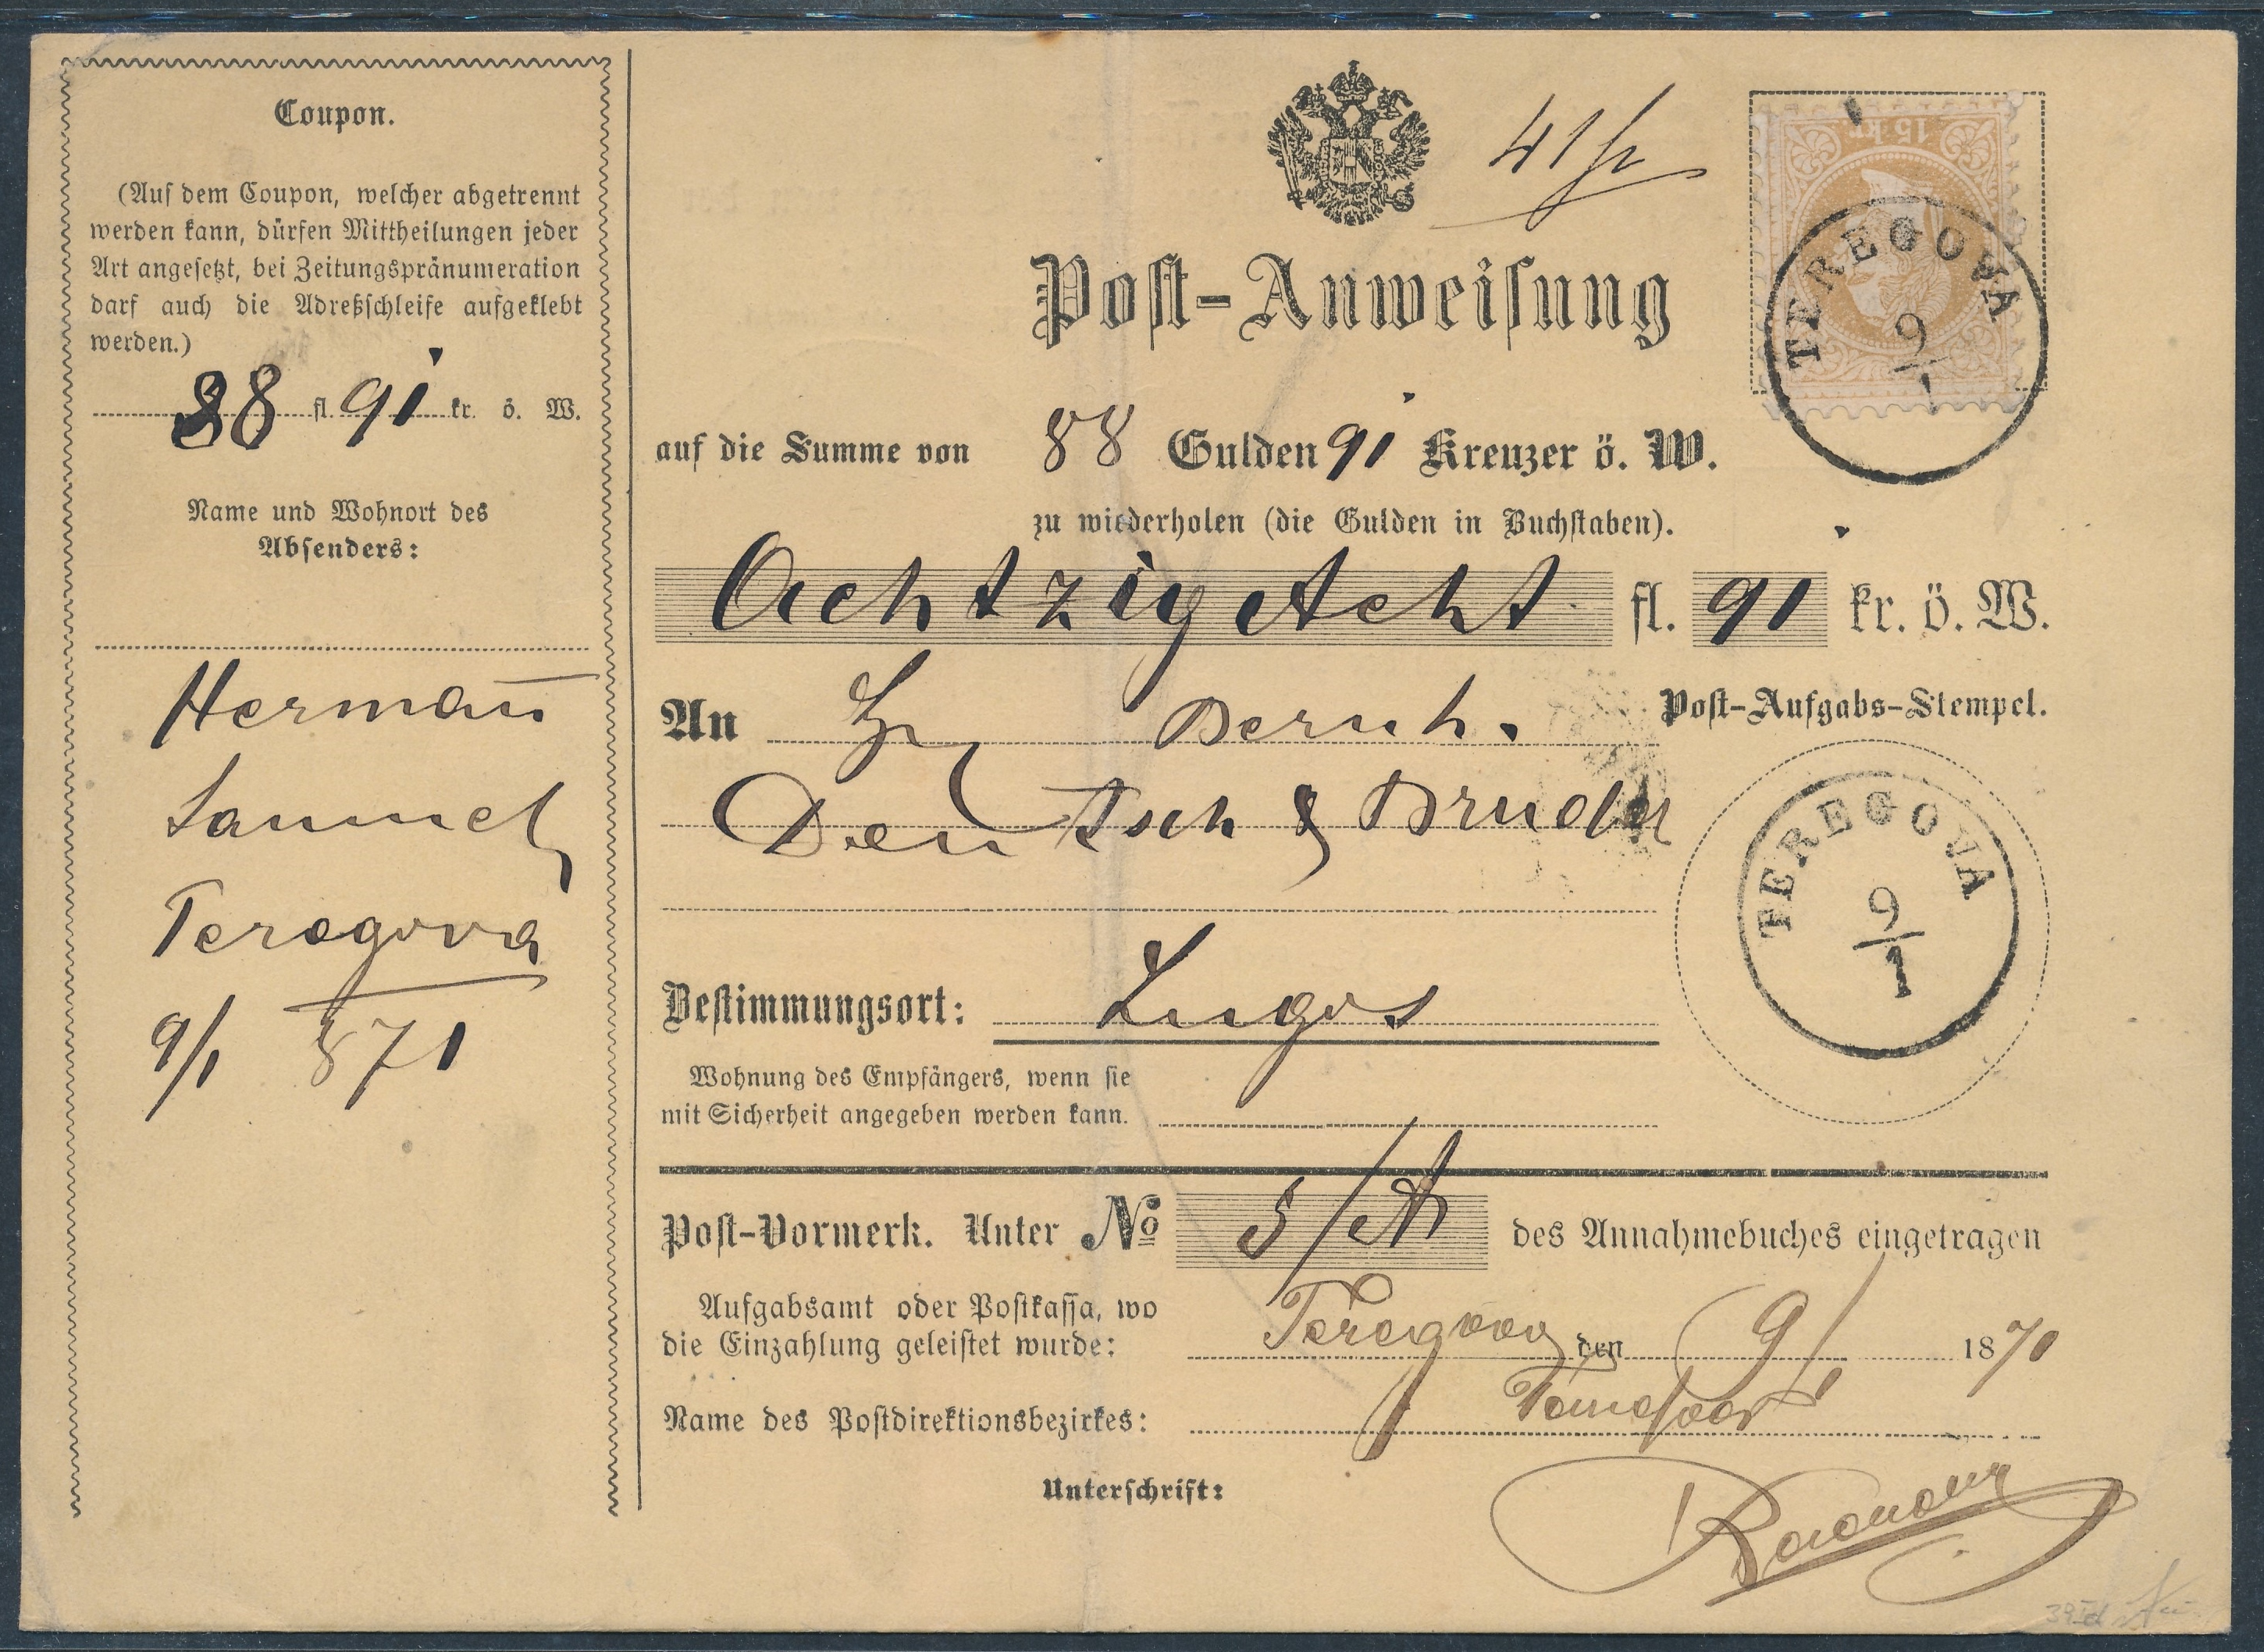 Coupon.
(Auf dem Coupon, welcher abgetrennt
werden kann, dürfen Mittheilungen jeder
Art angesetzt, bei Zeitungspränumeration
darf auch die Adreßschleife aufgeklebt
werden.)
88 fl. 91 kr. ö. W.
Name und Wohnort des
Absenders:
Hermañ
Samuel
Teregova
9/1 871
41
15 kr.
TEREGOVA
9/1
Post-Anweisung
auf die Summe von 88 Gulden 91 Kreuzer ö. W.
zu wiederholen (die Gulden in Buchstaben).
Achtzig Acht fl. 91 kr. ö. W.
An Bernh.
Deutsch & Bruder
Post-Aufgabs-Stempel.
TEREGOVA
9/1
Bestimmungsort: Lugos
Wohnung des Empfängers, wenn sie
mit Sicherheit angegeben werden kann.
Post-Vormerk. Unter № 5/A des Annahmebuches eingetragen
Aufgabsamt oder Postkassa, wo
die Einzahlung geleistet wurde: Teregova den 9/1 1870
Name des Postdirektionsbezirkes: Temesvar
Unterschrift: